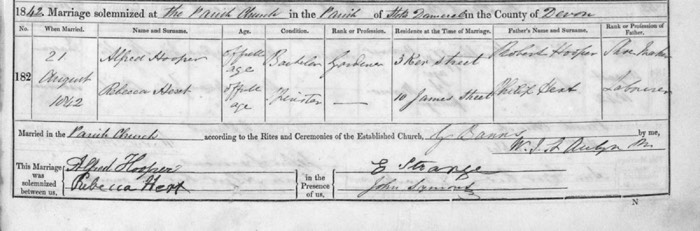 1842. Marriage solemnized at the Parish Church in the Parish of Stoke Damerel in the County of Devon
No. When Married. Name and Surname. Age. Condition. Rank or Profession. Residence at the Time of Marriage. Father's Name and Surname. Rank or Profession of Father.
182
21 August 1842
Alfred Hooper of full age Bachelor Gardener 3 Ker Street Robert Hooper Shoe Maker
Rebecca Hext of full age Spinster — 10 James Street Philip Hext Labourer
Married in the Parish Church according to the Rites and Ceremonies of the Established Church, by Banns by me,
W. J. St
This Marriage was solemnized between us,
Alfred Hooper
Rebecca Hext
in the Presence of us,
E Strange
John Symons
N